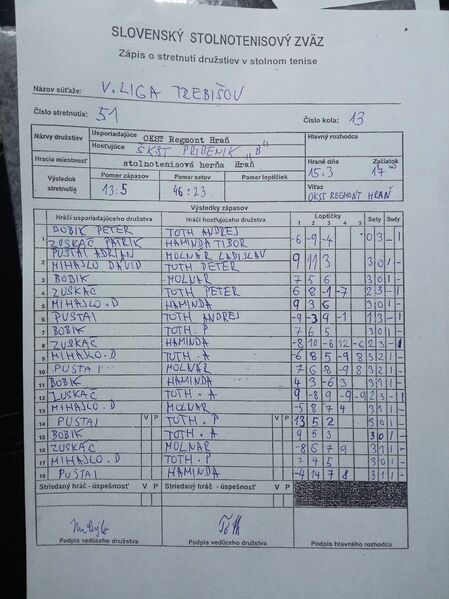 SLOVENSKÝ STOLNOTENISOVÝ ZVÄZ
Zápis o stretnutí družstiev v stolnom tenise
Názov súťaže: V. LIGA TREBIŠOV
Číslo stretnutia: 51 Číslo kola: 13
Názvy družstiev Usporiadajúce OKST Regmont Hraň Hlavný rozhodca
Hosťujúce ŠKST PRIBENÍK "B"
Hracia miestnosť stolnotenisová herňa Hraň Hrané dňa 15.3 Začiatok 17
Výsledok stretnutia Pomer zápasov 13:5 Pomer setov 46:23 Pomer loptičiek Víťaz OKST REGMONT HRAŇ
Výsledky zápasov
Hráči usporiadajúceho družstva Hráči hosťujúceho družstva Loptičky Sety Body
1 2 3 4 5
BOBIK PETER TOTH ANDREJ
1 ZUSKÁČ PATRIK HAMINDA TIBOR -6 -9 -4 0 3 - 1
PUSTAI ADRIAN MOLNÁR LADISLAV
2 MIHAJLO DÁVID TOTH PETER 9 11 3 3 0 1 -
3 BOBIK MOLNÁR 7 5 6 3 0 1 -
4 ZUSKÁČ TOTH PETER 6 8 -1 -7 2 3 - 1
5 MIHAJLO.D HAMINDA 9 3 6 3 0 1 -
6 PUSTAI TOTH ANDREJ -9 -3 9 -1 1 3 - 1
7 BOBIK TOTH. P 7 6 5 3 0 1 -
8 ZUSKÁČ HAMINDA -8 10 -6 12 -6 2 3 - 1
9 MIHAJLO.D TOTH. A -6 8 5 -9 8 3 2 1 -
10 PUSTAI MOLNÁR 7 6 8 -9 8 3 1 -
11 BOBIK HAMINDA 4 3 -6 3 3 1 1 -
12 ZUSKÁČ TOTH. A 9 -8 9 -9 -9 2 3 - 1
13 MIHAJLO.D MOLNÁR -5 8 7 4 3 1 1 -
14 PUSTAI V P TOTH. P V P 13 5 2 3 0 1 -
15 BOBIK TOTH. A 9 5 3 3 0 1 -
16 ZUSKÁČ MOLNÁR -8 6 7 9 3 1 1 -
17 MIHAJLO.D TOTH. P 7 4 5 3 0 1 -
18 PUSTAI HAMINDA -4 14 7 8 3 1 1 -
Striedaný hráč - úspešnosť V P Striedaný hráč - úspešnosť V P
Podpis vedúceho družstva Podpis vedúceho družstva Podpis hlavného rozhodcu